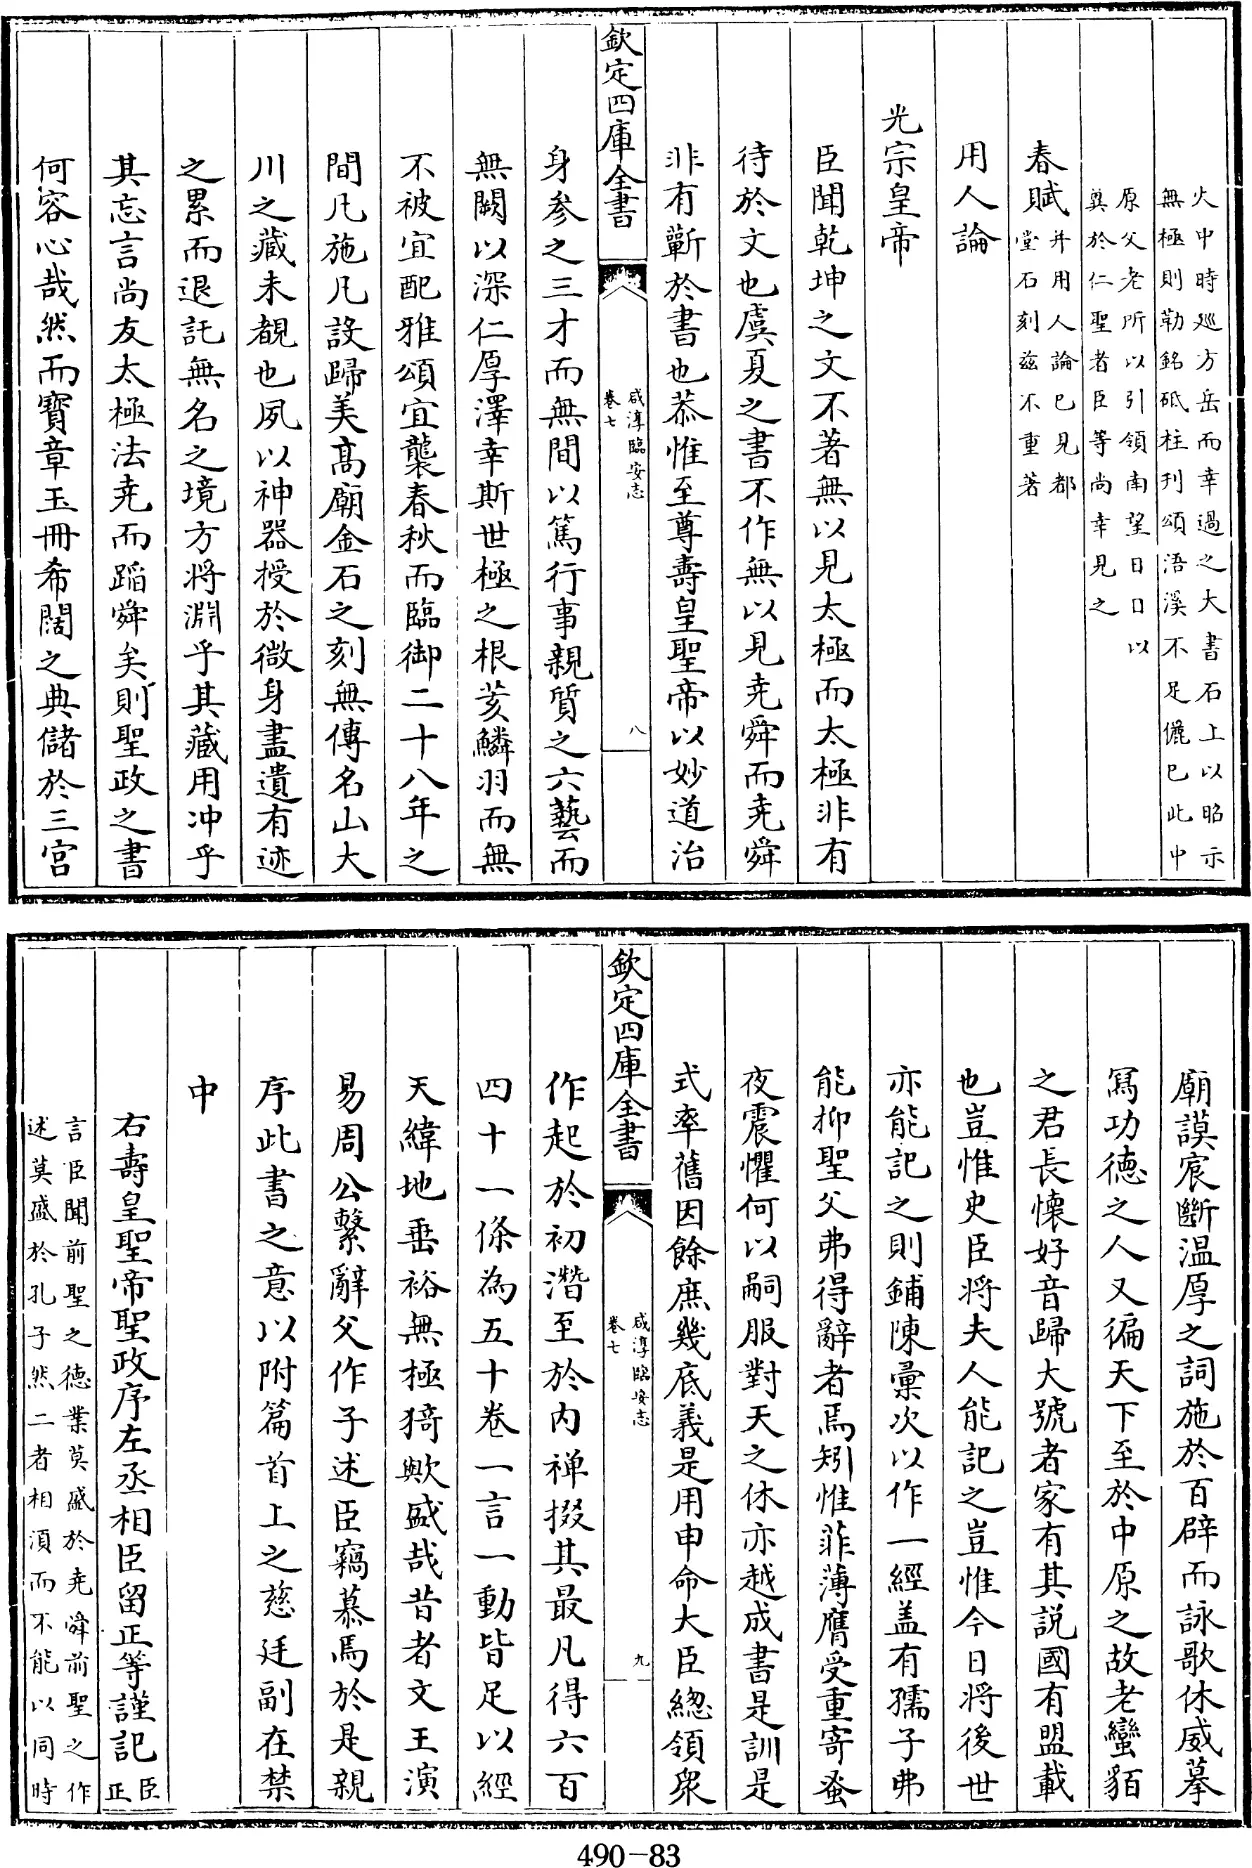 火中時廵方岳而幸過之大書石上以昭示
無極則勒銘砥柱刋頌浯溪不足儷已此中
原父老所以引領南望日日以
兾於仁聖者臣等尚幸見之
春賦并用人論已見都
堂石刻兹不重著
用人論
光宗皇帝
臣聞乾坤之文不著無以見太極而太極非有
待於文也虞夏之書不作無以見堯舜而堯舜
非有蘄於書也恭惟至尊壽皇聖帝以妙道治
欽定四庫全書
咸淳臨安志
卷七
八
身參之三才而無間以篤行事親質之六藝而
無闕以深仁厚澤幸斯世極之根荄鱗羽而無
不被宜配雅頌宜襲春秋而臨御二十八年之
間凡施凡設歸美髙廟金石之刻無傳名山大
川之藏未覩也夙以神器授於微身盡遺有迹
之累而退託無名之境方將淵乎其藏用冲乎
其忘言尚友太極法堯而蹈舜矣則聖政之書
何容心哉然而寶章玉冊希闊之典儲於三宫
廟謨宸斷温厚之詞施於百辟而詠歌休威摹
冩功德之人又徧天下至於中原之故老蠻貊
之君長懐好音歸大號者家有其説國有盟載
也豈惟史臣將夫人能記之豈惟今日將後世
亦能記之則鋪陳彚次以作一經盖有孺子弗
能抑聖父弗得辭者焉矧惟菲薄膺受重寄蚤
夜震懼何以嗣服對天之休亦越成書是訓是
式率舊因餘庶幾底義是用申命大臣總領衆
欽定四庫全書
咸淳臨安志
卷七
九
作起於初潛至於内禅掇其最凡得六百
四十一條為五十卷一言一動皆足以經
天緯地垂裕無極猗歟盛哉昔者文王演
易周公繫辭父作子述臣竊慕焉於是親
序此書之意以附篇首上之慈廷副在禁
中
右壽皇聖帝聖政序左丞相臣留正等謹記臣
正
言臣聞前聖之德業莫盛於堯舜前聖之作
述莫盛於孔子然二者相湏而不能以同時
490-83